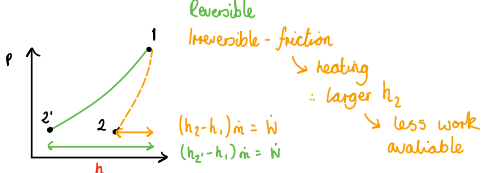 Reversible
Irreversible - friction
→ heating
∴ larger h₂
→ less work
avaliable
P
1
2'
2
h
(h₂-h₁)ṁ = Ẇ
(h₂'-h₁)ṁ = Ẇ